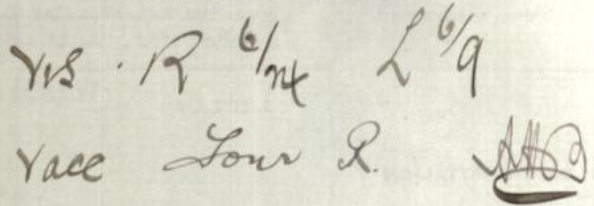 Vis. R 6/24 L 6/9
Vacc Four R.